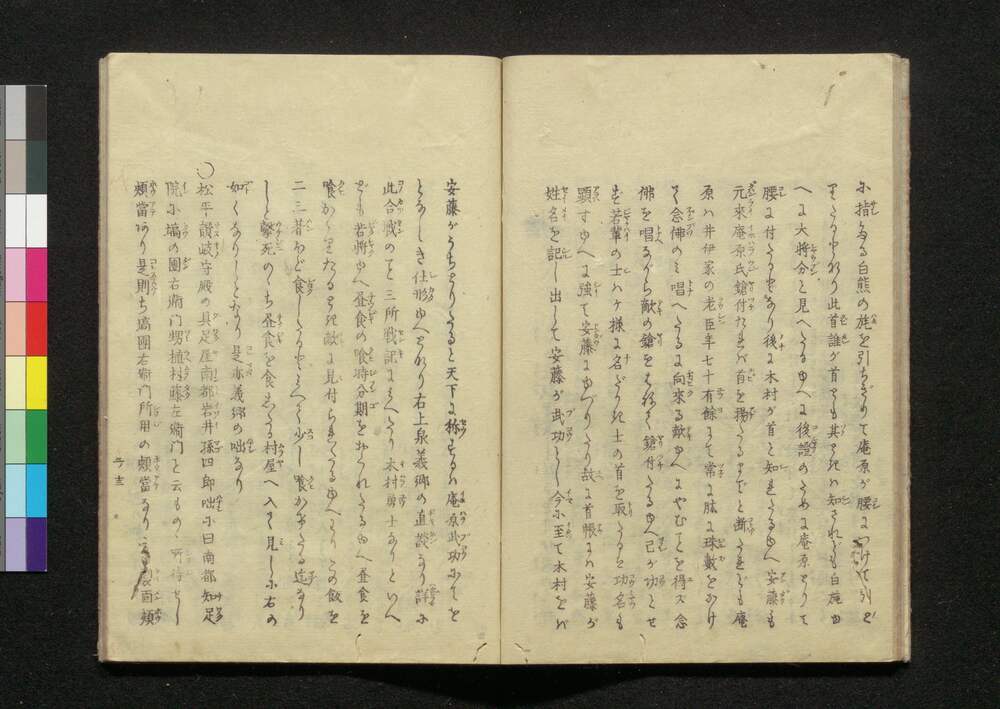 に指たる白熊の旄を引ちぎりて庵原が腰につけて引と
りたりけれ𪜈此首誰が首とも其ときは知されども白旄ゆ
へに大将分と見へたるゆへに後證のために庵原とりて
腰に付たるなり後に木村が首と知れたるゆへ安藤も
元來庵原氏鎗付たれば首を揚たるまでと断たれども庵
原は井伊家の老臣年七十有餘にて常に肱に珠數をかけ
て念佛のみ唱へたるに向來る敵ゆへにやむことを得ス念
佛を唱ながら敵の鎗をはねて鎗付たるゆへ己が功とせ
ず若輩の士はケ様に名ある士の首を取たると功名も
顕すゆへに強て安藤にゆづりたり故に首帳には安藤が
姓名を記し出して安藤が武功とし今に至て木村をば
安藤がうちとりたると天下に称するは庵原武功にてを
となしき仕形ゆへなり右上泉義郷の直談なり詳に
此合戦のこと三所戦記にみへたり木村勇士なりといへ
ども若将ゆへ昼食の喰時分期をおくれたるゆへ昼食を
喰かゝりたるとき敵に見付られたるゆへなりこの飯を
二三箸ほど食したりとみへて少し喰かけたる迄なり
しと撃死のゝち昼食を食したる村屋へ入て見しに右の
如くなりしとなり是亦義郷の咄なり
〇松平讃岐守殿の具足屋南都岩井孫四郎咄に曰南都知足
院に塙の團右衛門甥植村藤左衛門と云もの所持せし
頬當あり是則ち塙團右衛門所用の頬當なり 面頬